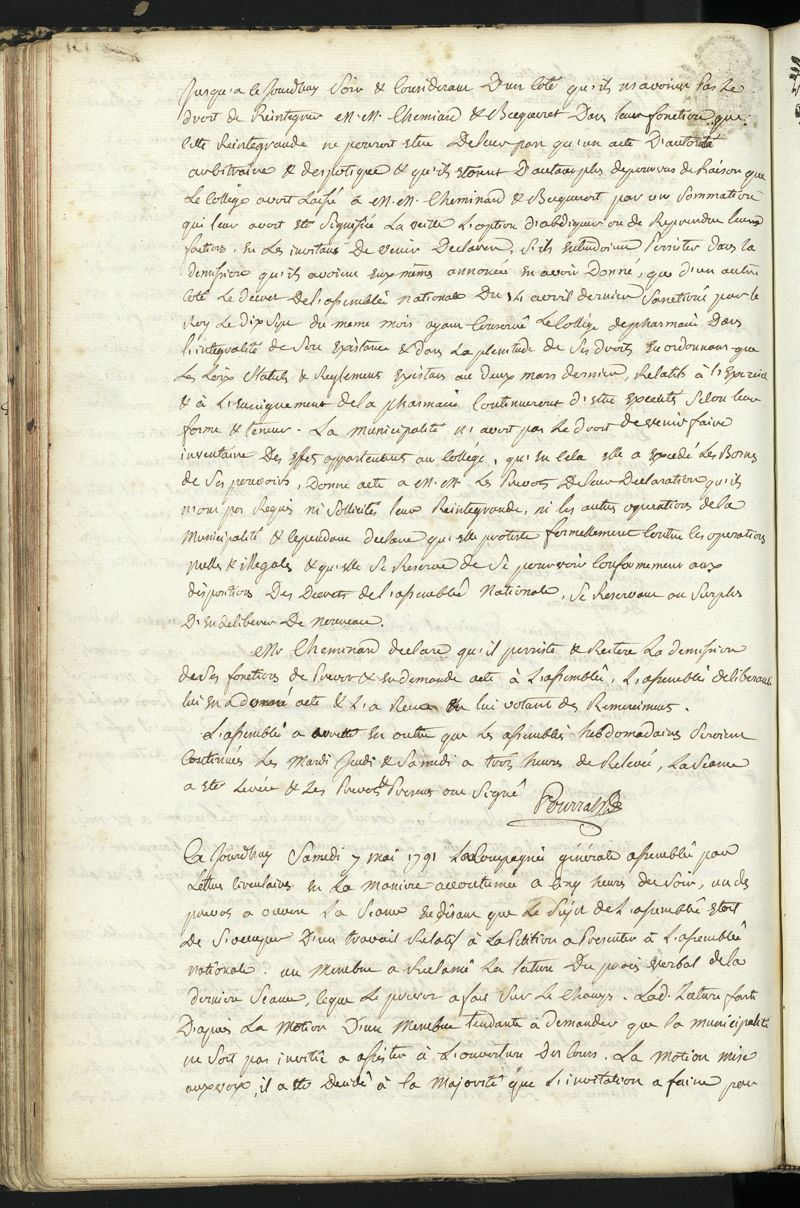 Jusqu'a ce Jourdhuy Soir & Considerant D'un Coté qu'ils n'avoient pas Le
droit de Reintegrer M.M. Cheminard & Becqueret Dans leur fonctions, que
cette Reintegrande ne pouvoit etre De leur part qu'un acte D'autorité
arbitraire & despotique & qu'ils etoient D'autant plus depourvus de Raison que
Le College avoit Laissé a M.M. Cheminard & Becqueret par une Sommation
qui leur avoit eté Signifiée La veille L'option d'abdiquer ou de Reprendre leurs
fonctions, en Les invitant De venir Declarer, S'ils entendoient Persister dans la
demission qu'ils avoient eux mêmes annoncée en avoir Donné, que d'un autre
coté Le decret De l'assemblée nationale Du 14 avril dernier Sanctionné par le
Roy Le dix Sept du meme mois ayant Conservé Le College de pharmacie Dans
l'integralité de Son existance & dans La plenitude de Ses droits en ordonnant que
Les Loix Statuts & Reglements existans au deux mars dernier, Relatifs à l'exercice
& à L'enseignement de la pharmacie Continueront d'etre executés Selon leur
forme & teneur. La municipalité n'avoit pas Le droit de venir faire
inventaire Des effets appartenans au College, qu'en Cela elle a excedé Les Bornes
de Ses pouvoirs, Donne acte a M.M. Les Prevots De leur Declaration qu'ils
n'ont pas Requis ni Sollicité leur Reintegrande, ni les autres operations de la
Municipalité & Cependant declare qu'elle proteste formellement Contre les operations
nulles & illegales & qu'elle Se Reserve de Se pourvoir Conformement aux
dispositions Des Decrets de l'assemblée Nationale, Se Reservant au Surplus
D'en deliberer De nouveau.
Mr Cheminard declare qu'il persiste & Reitere La demission
de Ses fonctions de Prevot & en demande acte à L'assemblée, L'assemblée deliberant
lui en a donné acte & L'a Recue en lui votant des Remerciments.
L'assemblée a arreté en outre que Les assemblées hebdomadaires Seroient
Continuées Les Mardi Jeudi & Samedi a trois heures de Relevée, La Seance
a eté Levée & Les Prevots Presens ont Signé
Ce Jourdhuy Samedi 7 mai 1791 La Compagnie générale assemblée par
Lettres Circulaires en La Maniere accoutumée a Cinq heures du Soir, un des
prevots a ouvert La Seance en disant que Le Sujet de L'assemblée etoit
de S'occuper D'un travail Relatif à La Petition a Presenter à L'assemblée
nationale. un Membre a Reclamé La lecture Du procès verbal de la
derniere Seance, ce que Le prevot a fait Sur Le Champ. Lad. Lecture faite
D'après La Motion D'un Membre tendante à demander que la municipalité
ne Soit pas invitée a assister à L'ouverture Des Cours. La Motion mise
aux voix, il a eté Decidé à la Majorité que L'invitation a faire pour